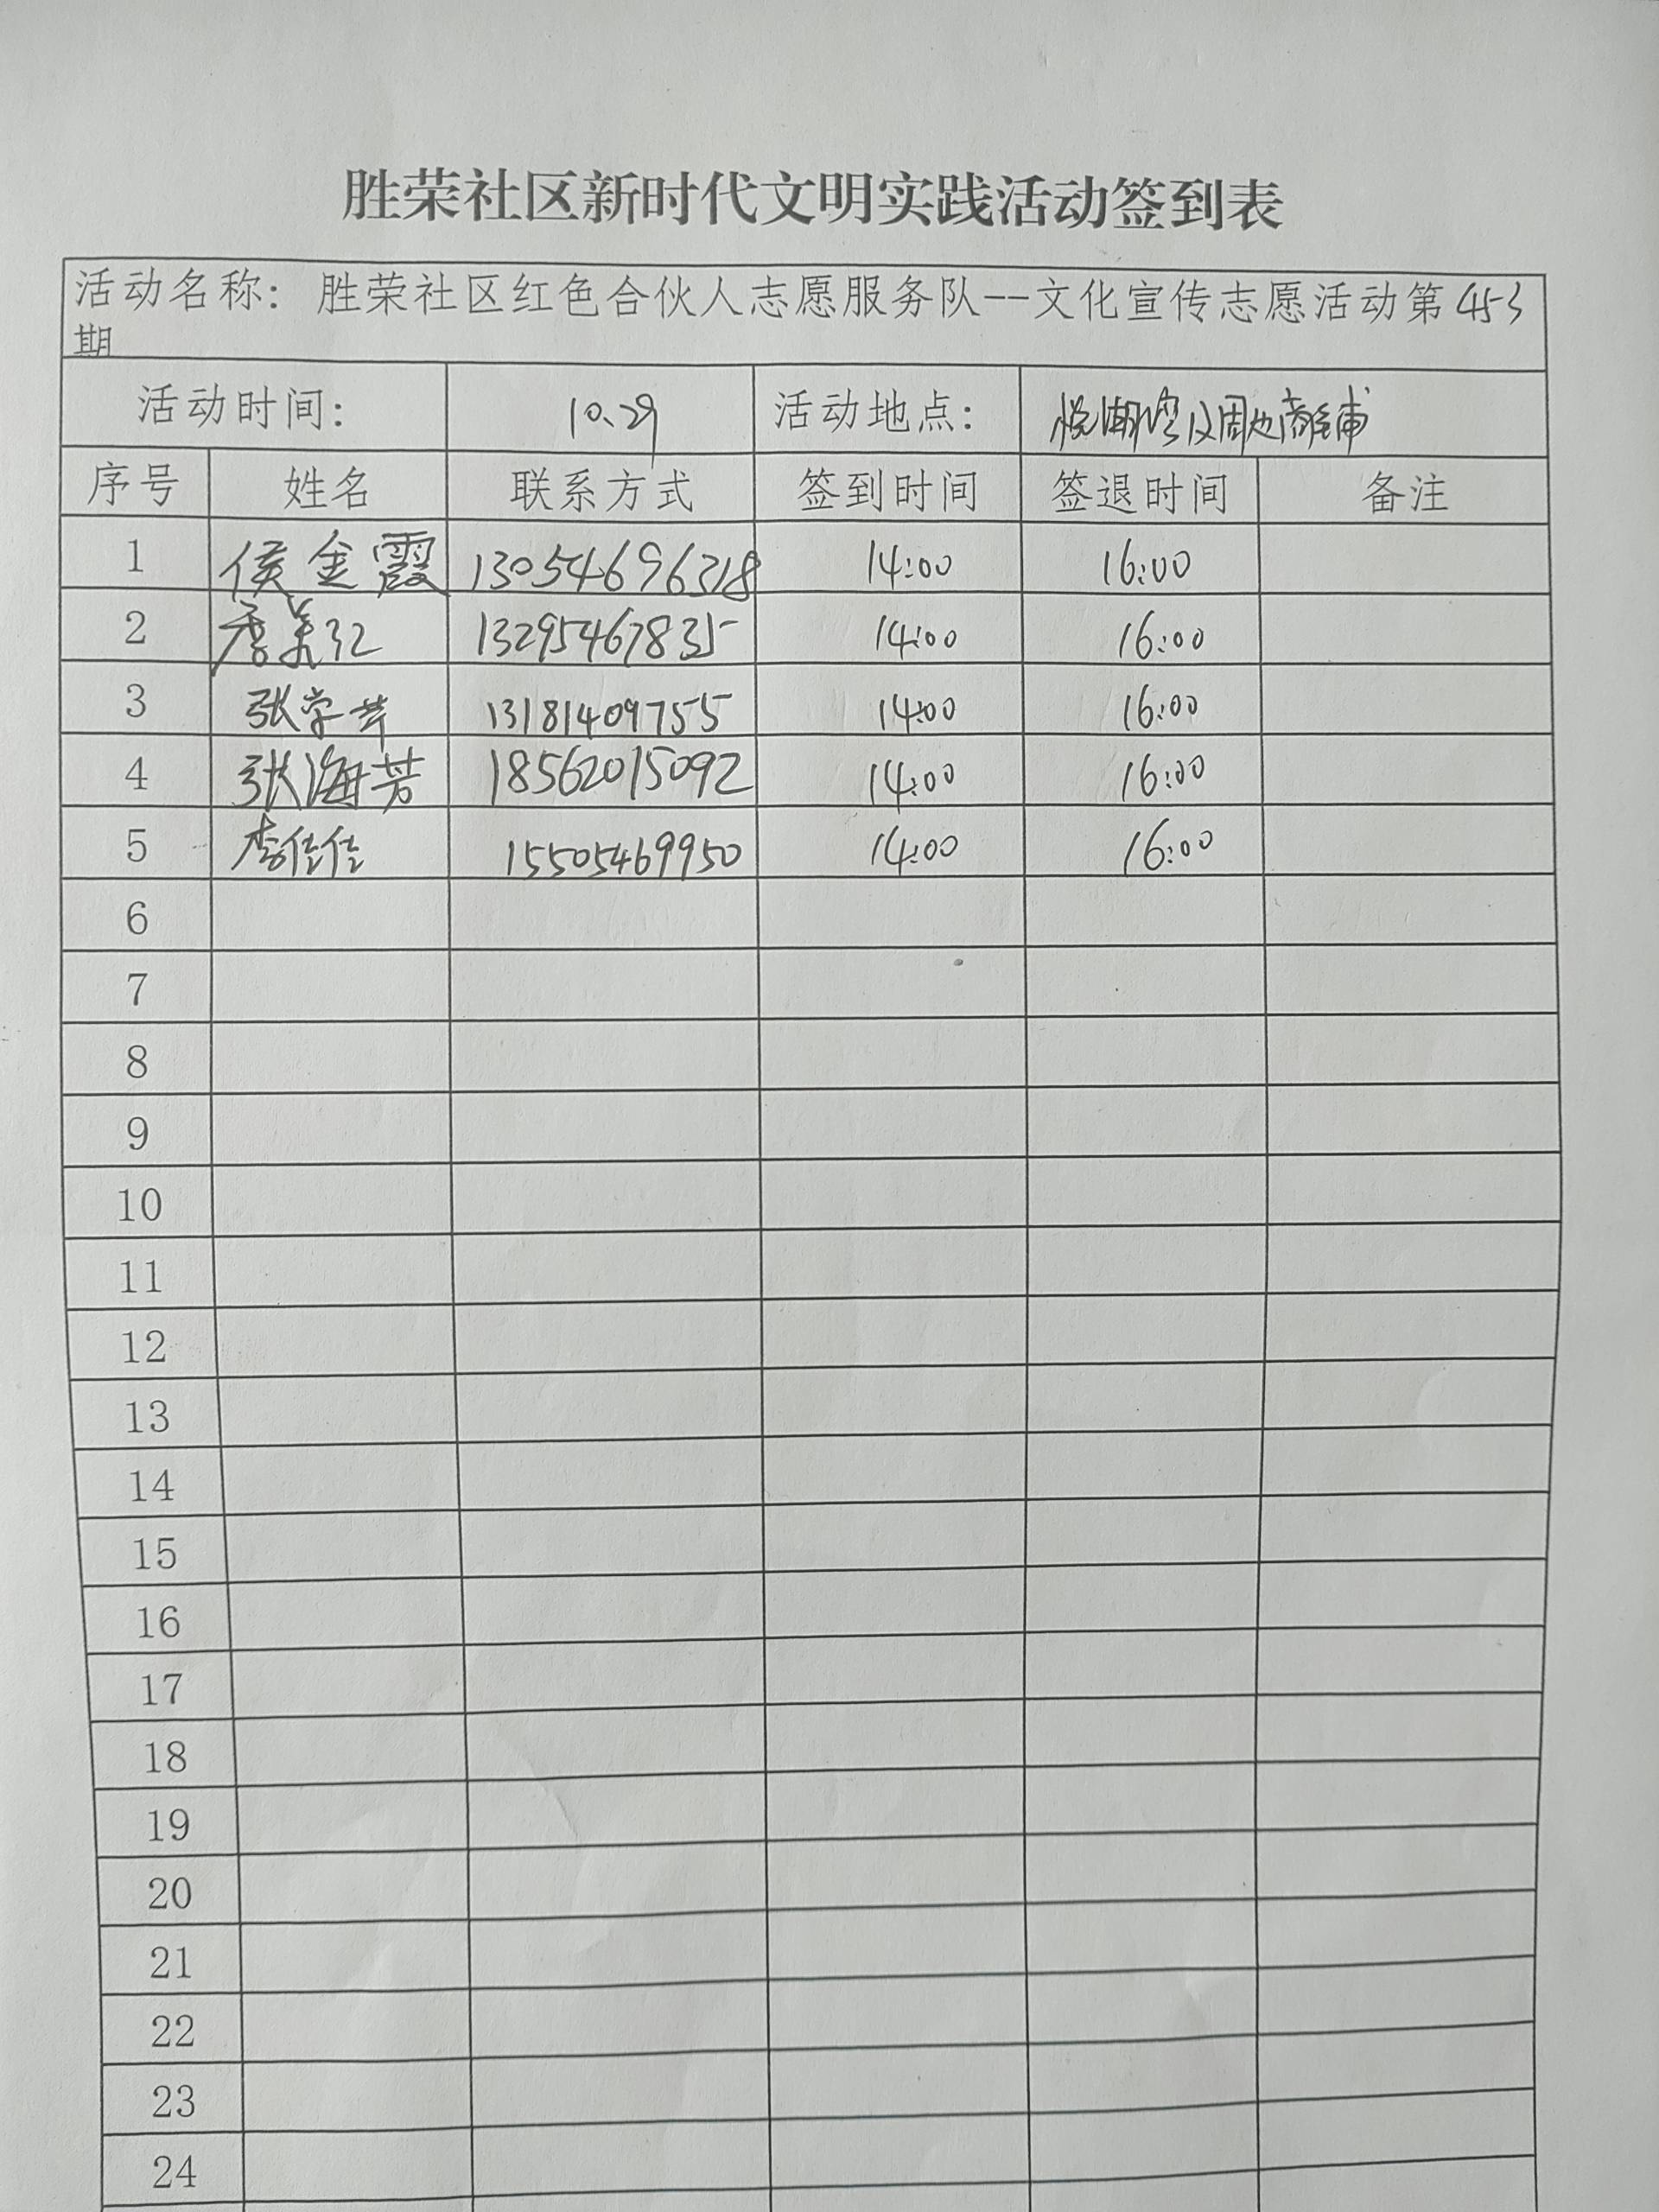 胜荣社区新时代文明实践活动签到表
活动名称：胜荣社区红色合伙人志愿服务队--文化宣传志愿活动第453
期
活动时间： 10.29 活动地点： 悦潮湾及周边商铺
序号 姓名 联系方式 签到时间 签退时间 备注
1 侯金霞 13054696318 14:00 16:00
2 季美红 13295467835 14:00 16:00
3 张学芹 13181409755 14:00 16:00
4 张海芳 18562015092 14:00 16:00
5 李佳佳 15505469950 14:00 16:00
6
7
8
9
10
11
12
13
14
15
16
17
18
19
20
21
22
23
24